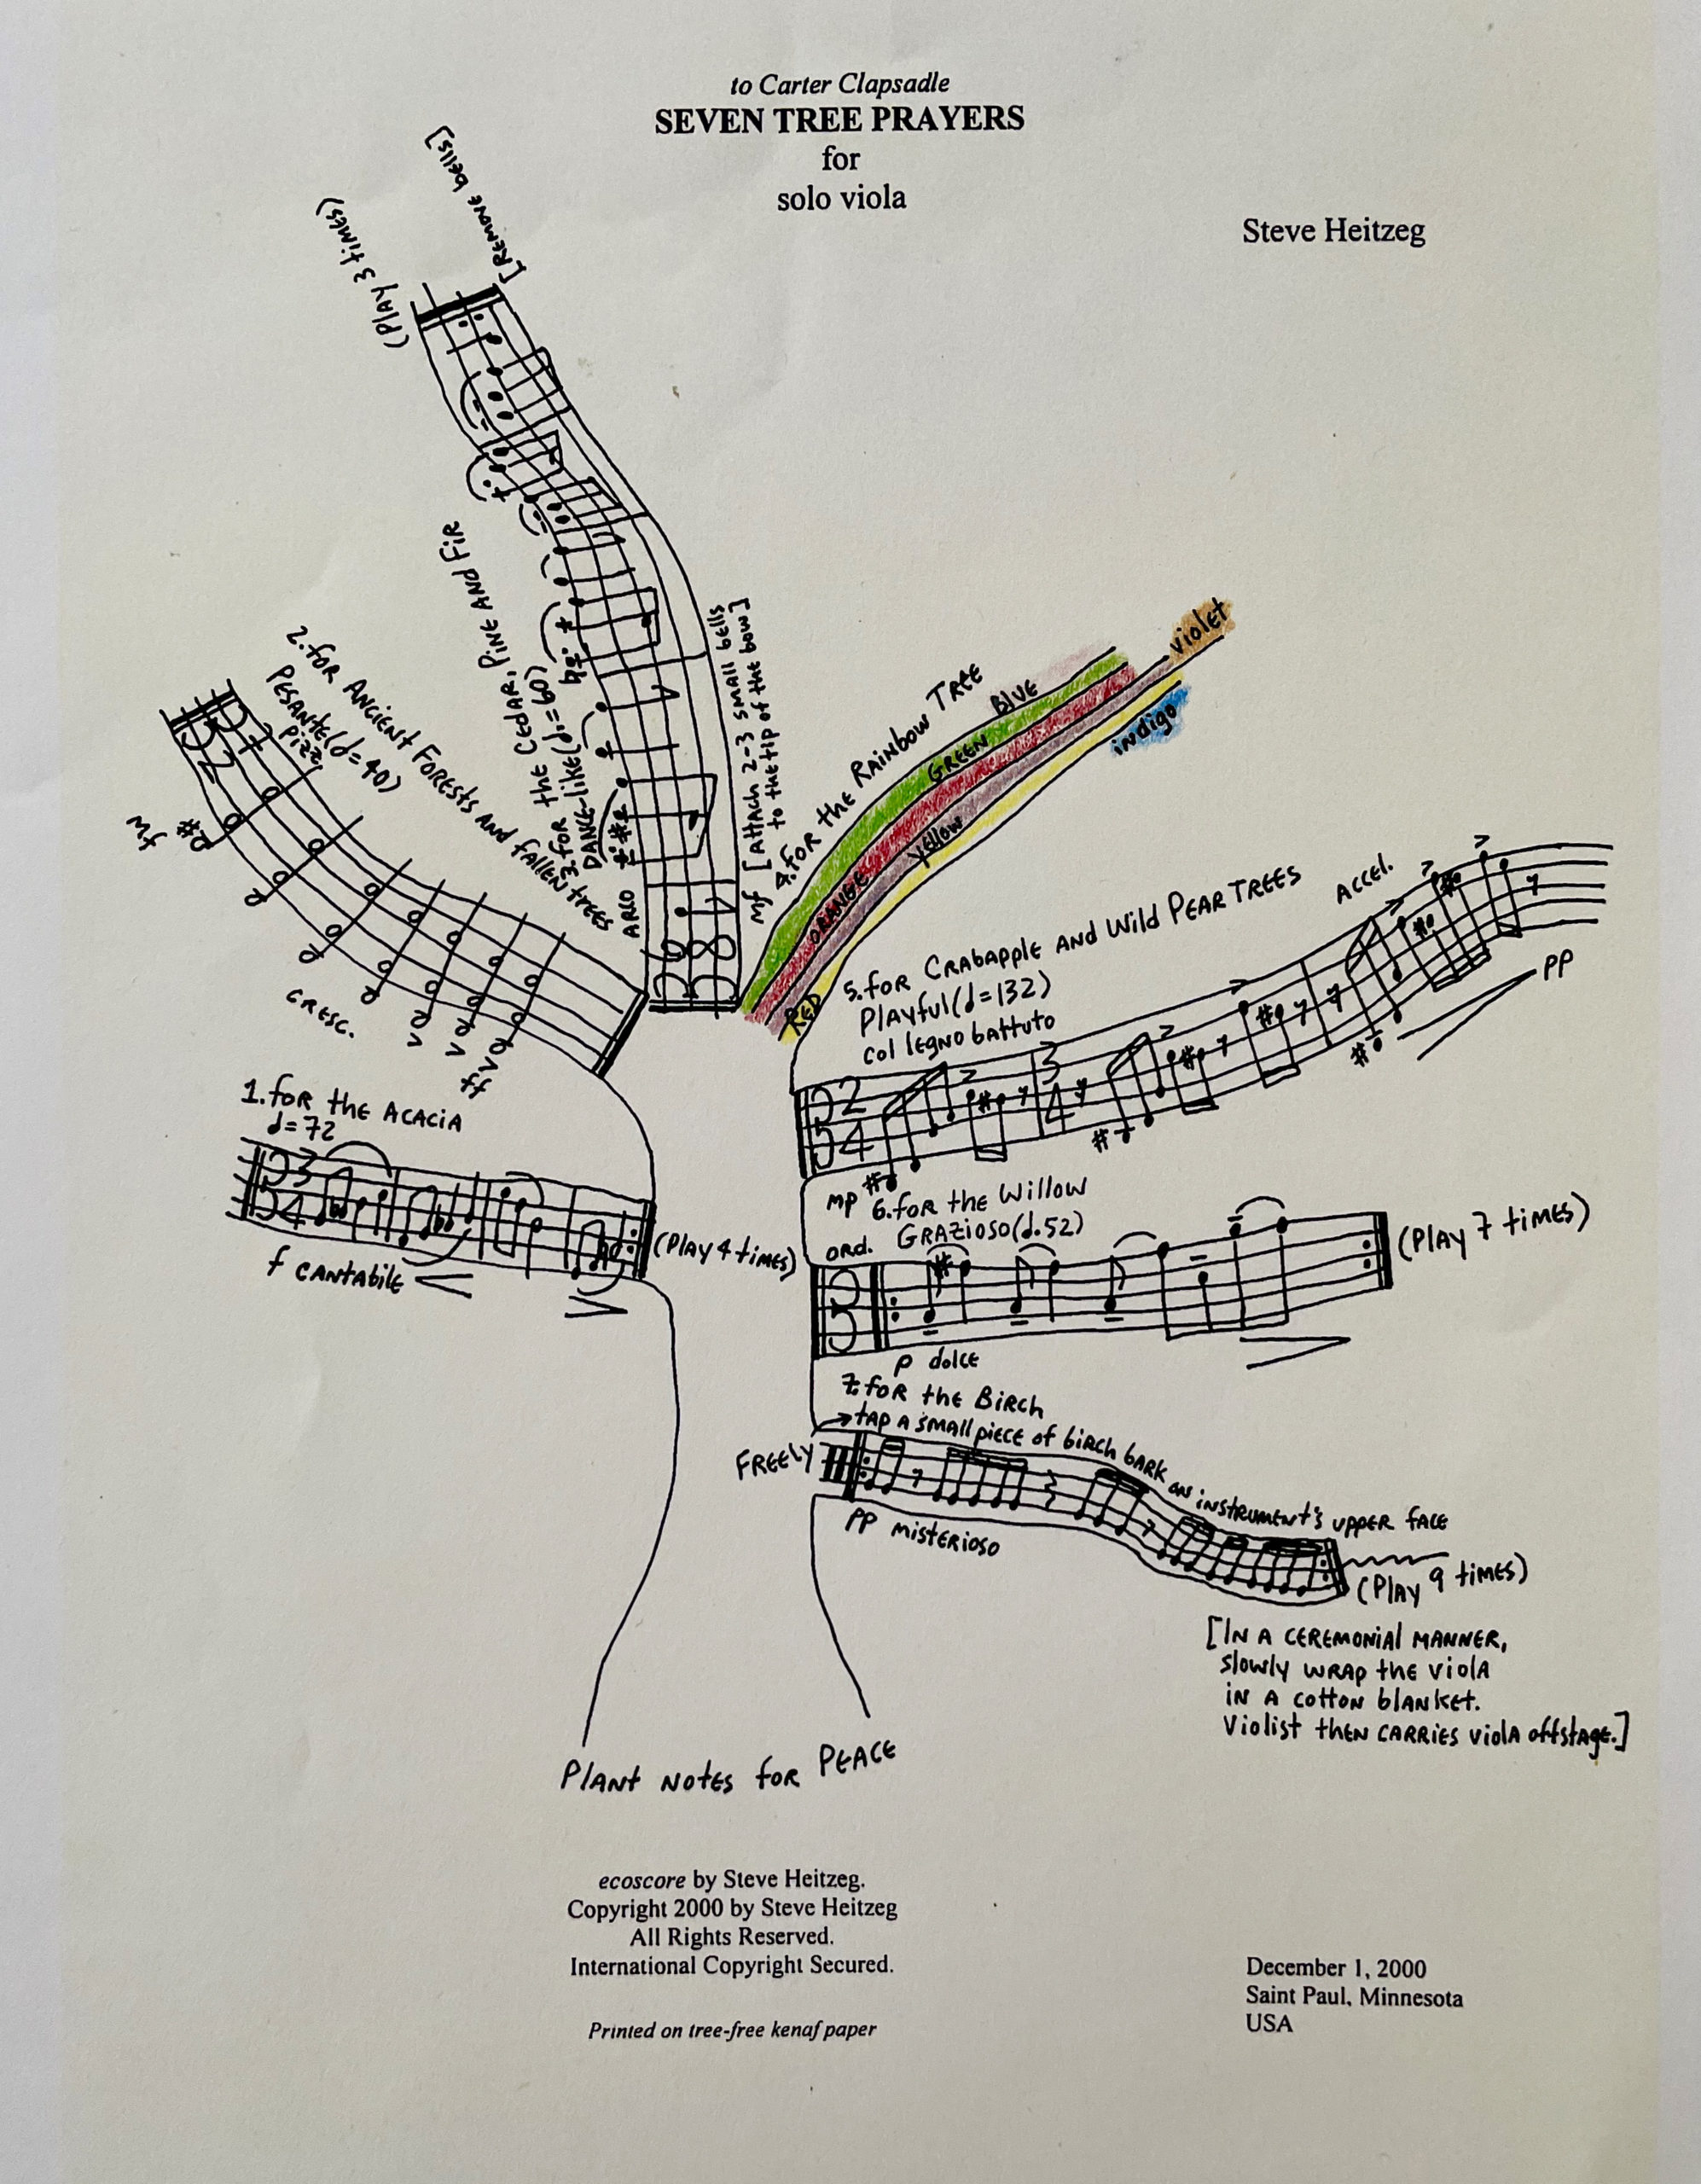 to Carter Clapsadle
SEVEN TREE PRAYERS
for
solo viola
Steve Heitzeg
1. for the Acacia
♩=72
3
4
f cantabile
(Play 4 times)
2. for Ancient Forests and fallen trees
Pesante (𝅗𝅥=40)
pizz
mf
cresc.
ff
3. for the Cedar, Pine and Fir
Dance-like (♩.=60)
arco
6
8
mf [Attach 2-3 small bells
to the tip of the bow]
(Play 3 times)
[Remove bells]
4. for the Rainbow Tree
Blue
Green
violet
Orange
Yellow
indigo
Red
5. for Crabapple and Wild Pear Trees
Playful (♩=132)
col legno battuto
Accel.
2
4
3
4
mp
pp
6. for the Willow
Grazioso (♩.52)
ord.
p dolce
(Play 7 times)
7. for the Birch
→tap a small piece of birch bark on instrument's upper face
Freely
pp misterioso
(Play 9 times)
[In a ceremonial manner,
slowly wrap the viola
in a cotton blanket.
Violist then carries viola offstage.]
Plant Notes for Peace
ecoscore by Steve Heitzeg.
Copyright 2000 by Steve Heitzeg
All Rights Reserved.
International Copyright Secured.
Printed on tree-free kenaf paper
December 1, 2000
Saint Paul, Minnesota
USA